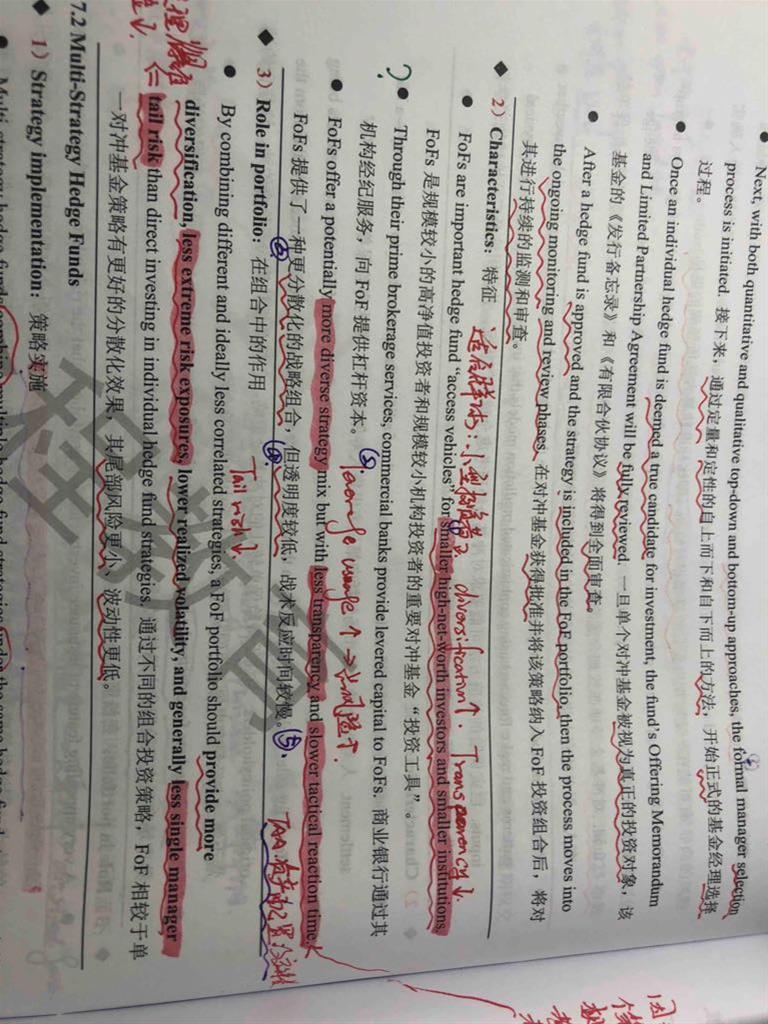 ● Next, with both quantitative and qualitative top-down and bottom-up approaches, the formal manager selection
process is initiated. 接下来，通过定量和定性的自上而下和自下而上的方法，开始正式的基金经理选择
过程。
● Once an individual hedge fund is deemed a true candidate for investment, the fund's Offering Memorandum
and Limited Partnership Agreement will be fully reviewed. 一旦单个对冲基金被视为真正的投资对象，该
基金的《发行备忘录》和《有限合伙协议》将得到全面审查。
● After a hedge fund is approved and the strategy is included in the FoF portfolio, then the process moves into
the ongoing monitoring and review phases. 在对冲基金获得批准并将该策略纳入 FoF 投资组合后，将对
其进行持续的监测和审查。
◆ 2) Characteristics: 特征
diversification↑. Transparency↓.
● FoFs are important hedge fund "access vehicles" for smaller high-net-worth investors and smaller institutions.
FoFs 是规模较小的高净值投资者和规模较小机构投资者的重要对冲基金“投资工具”。
● Through their prime brokerage services, commercial banks provide levered capital to FoFs. 商业银行通过其
机构经纪服务，向 FoF 提供杠杆资本。
leverage usage ↑ → 风险↑.
● FoFs offer a potentially more diverse strategy mix but with less transparency and slower tactical reaction time.
FoFs 提供了一种更分散化的战略组合，但透明度较低，战术反应时间较慢。
⑤.
◆ 3) Role in portfolio: 在组合中的作用
Tail risk↓
● By combining different and ideally less correlated strategies, a FoF portfolio should provide more
diversification, less extreme risk exposures, lower realized volatility, and generally less single manager
tail risk than direct investing in individual hedge fund strategies. 通过不同的组合投资策略，FoF 相较于单
一对冲基金策略有更好的分散化效果，其尾部风险更小、波动性更低。
7.2 Multi-Strategy Hedge Funds
◆ 1) Strategy implementation: 策略实施
● Multi-strategy hedge funds combine multiple hedge fund strategies under the same hedge fund
程教育